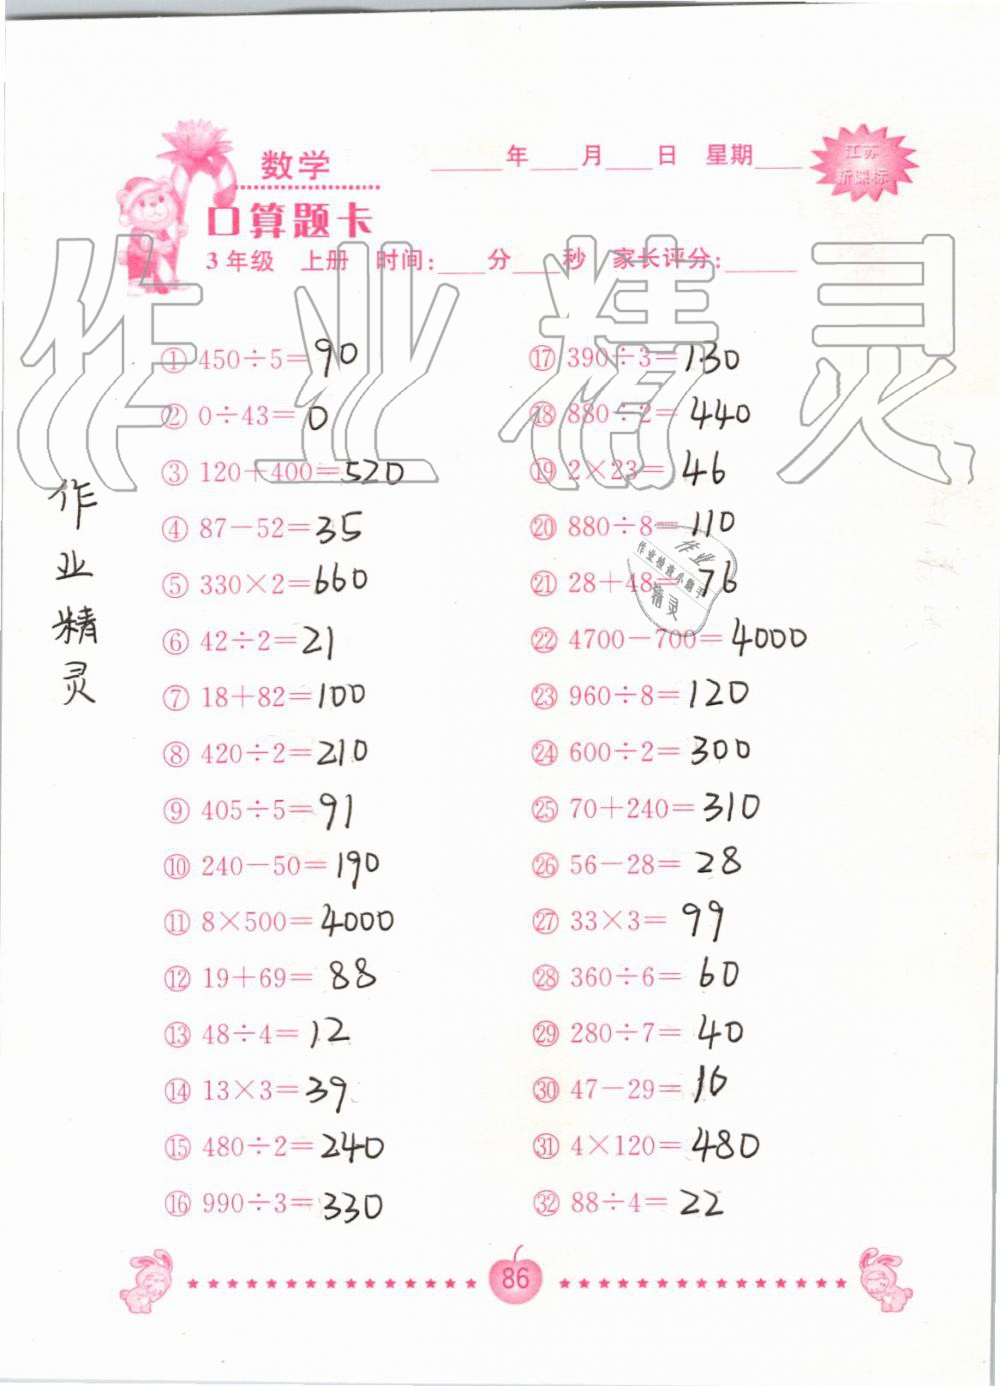 数学
____年____月____日 星期____
江苏
新课标
口算题卡
3年级 上册 时间:____分____秒 家长评分:____
作业精灵
① 450÷5=90
② 0÷43=0
③ 120+400=520
④ 87-52=35
⑤ 330×2=660
⑥ 42÷2=21
⑦ 18+82=100
⑧ 420÷2=210
⑨ 405÷5=91
⑩ 240-50=190
⑪ 8×500=4000
⑫ 19+69=88
⑬ 48÷4=12
⑭ 13×3=39
⑮ 480÷2=240
⑯ 990÷3=330
⑰ 390÷3=130
⑱ 880÷2=440
⑲ 2×23=46
⑳ 880÷8=110
㉑ 28+48=76
㉒ 4700-700=4000
㉓ 960÷8=120
㉔ 600÷2=300
㉕ 70+240=310
㉖ 56-28=28
㉗ 33×3=99
㉘ 360÷6=60
㉙ 280÷7=40
㉚ 47-29=16
㉛ 4×120=480
㉜ 88÷4=22
作
业
精
灵
作业
作业检查小助手
精灵
86